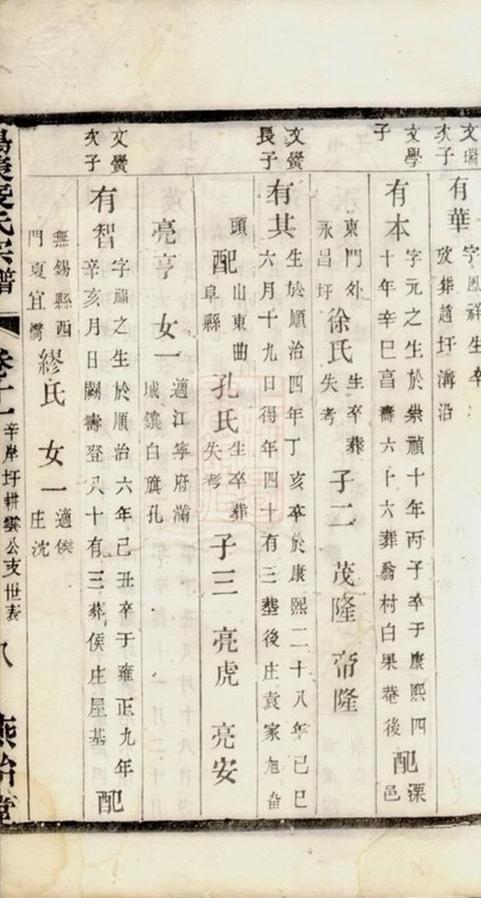 文瑞
次子
有華
字鳳祥生卒
攷葬趙圩溝沿
文學
子
有本
字元之生於崇禎十年丙子卒于康熙四
十年辛巳旹壽六十六葬翁村白果菴後
配
溧
邑
東門外
永昌圩
徐氏
生卒葬
失考
子二 茂隆 帝隆
文黌
長子
有其
生於順治四年丁亥卒於康熙二十八年己巳
六月十九日得年四十有三葬後庄袁家旭
頭 配
山東曲
阜縣
孔氏
生卒葬
失考
子三 亮虎 亮安
亮亨 女一
適江寧府滿
城鑲白旗孔
文黌
次子
有智
字福之生於順治六年己丑卒于雍正九年
辛亥月日闕壽登八十有三葬侯庄屋基
配
無錫縣西
門夏宜橋
繆氏 女一
適侯
庄沈
氏宗譜 卷十一 辛岸圩耕雲公支世表 八 燕怡堂